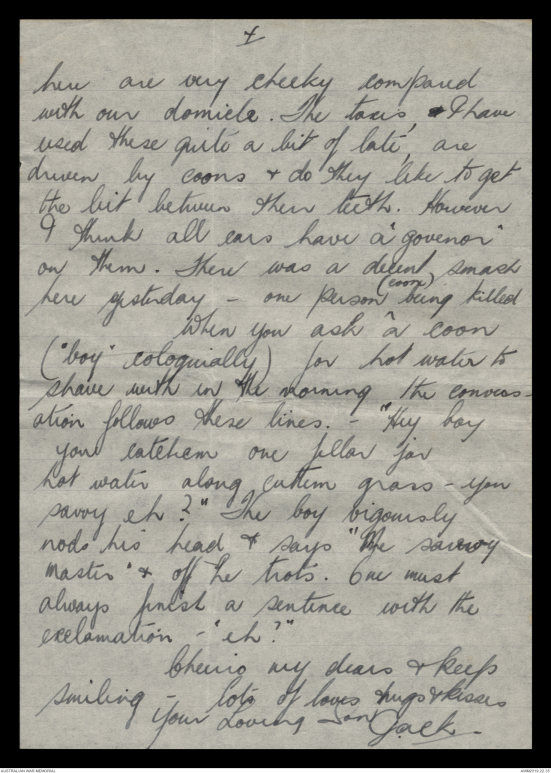 4
here are very cheeky compared
with our domicle. The taxis, & I have
used these quite a bit of late, are
driven by coons & do they like to get
the bit between their teeth. However
I think all cars have a "govenor"
on them. There was a decent smash
here yesterday - one person (coon) being killed
When you ask a coon
("boy" cologually) for hot water to
shave with in the morning the convers-
ation follows these lines. - "Hey boy
you catchem one fellar jar
hot water along cuttem grass - you
savvy eh?" The boy vigoursly
nods his head & says "Me savvy
master" & off he trots. One must
always finish a sentence with the
exclamation - "eh?"
Cheerio my dears & keep
smiling - lots of loves hugs & kisses
Your Loving Son Jack.
AUSTRALIAN WAR MEMORIAL
AWM2019.22.37